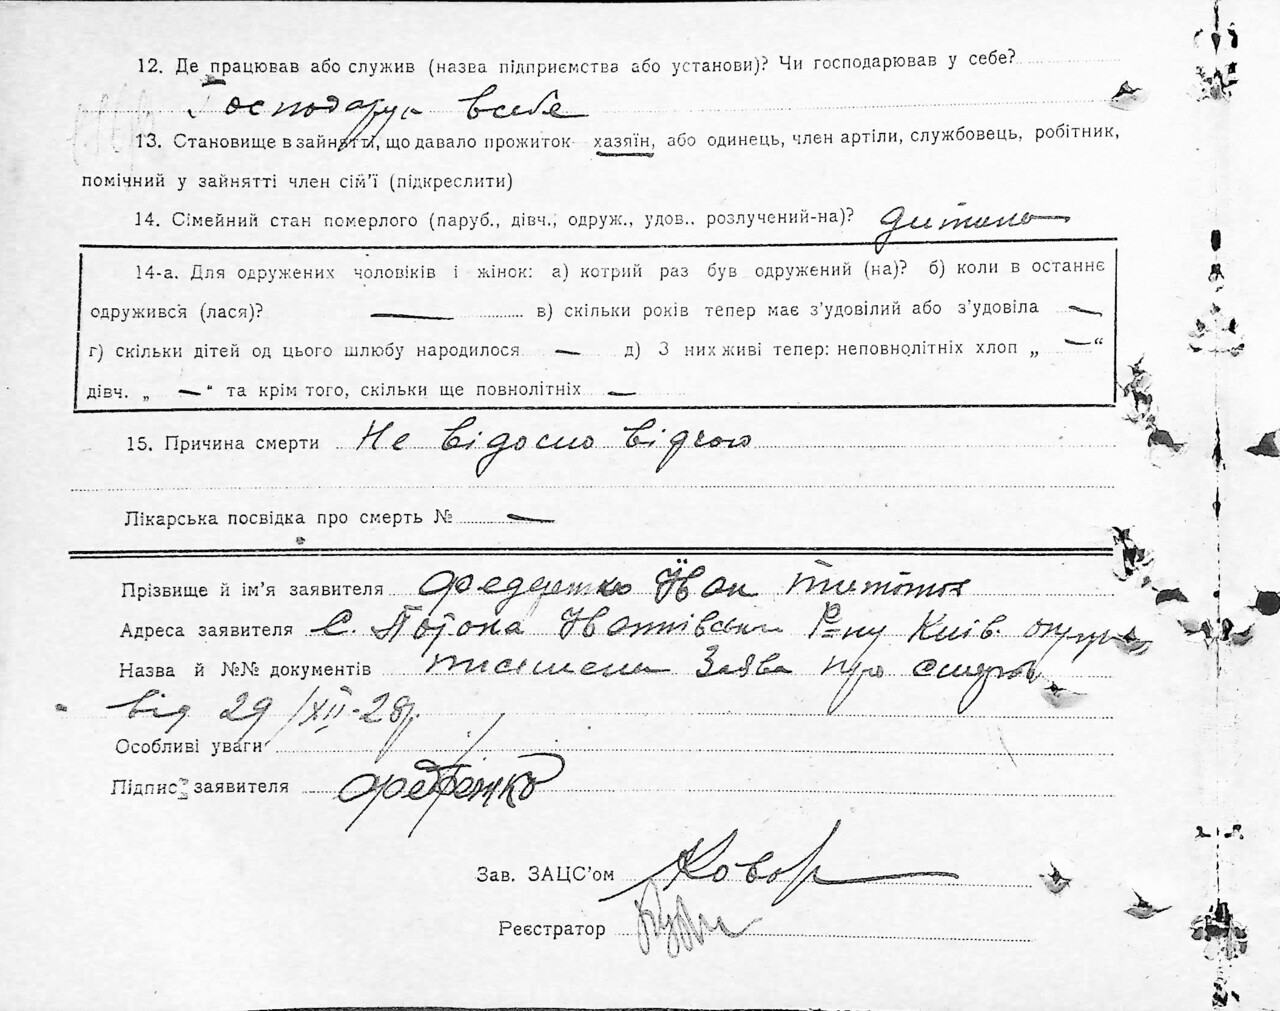 12. Де працював або служив (назва підприємства або установи)? Чи господарював у себе?
Господарув в себе
13. Становище в зайнятті, що давало прожиток хазяїн, або одинець, член артіли, службовець, робітник,
помічний у зайнятті член сім’ї (підкреслити)
14. Сімейний стан померлого (паруб., дівч., одруж., удов., розлучений-на)? дитина
14-а. Для одружених чоловіків і жінок: а) котрий раз був одружений (на)? б) коли в останнє
одружився (лася)? — в) скільки років тепер має з’удовілий або з’удовіла —
г) скільки дітей од цього шлюбу народилося — д) З них живі тепер: неповнолітніх хлоп „ — “
дівч. „ — “ та крім того, скільки ще повнолітніх —
15. Причина смерти Не відомо від чого
Лікарська посвідка про смерть № —
Прізвище й ім’я заявителя Федоренко Іван
Адреса заявителя С. Потока Р-ну Київ. округи
Назва й №№ документів писмена Заява про смерть
від 29/XII-28р.
Особливі уваги
Підпис заявителя
Зав. ЗАЦС’ом
Реєстратор